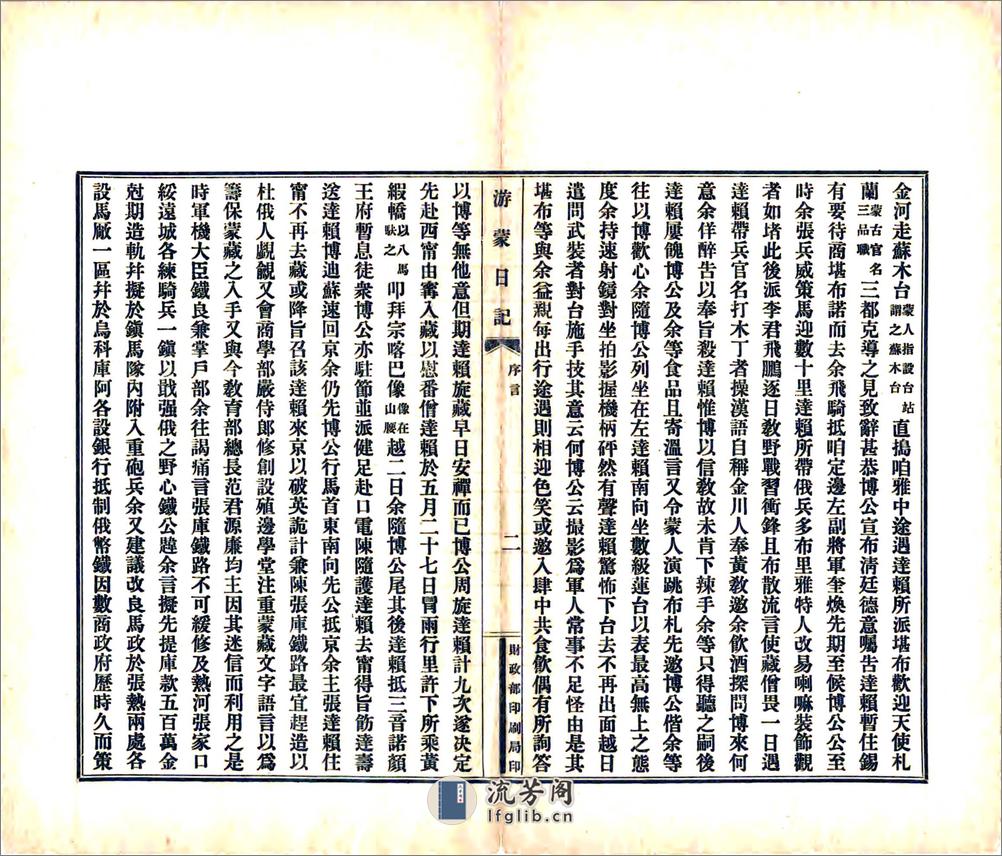 金河走蘇木台蒙人指設台站謂之蘇木台直搗咱雅中途遇達賴所派堪布歡迎天使札
蘭蒙古官名三品職三都克導之見致辭甚恭博公宣布淸廷德意囑告達賴暫住錫
有要待商堪布諾而去余飛騎抵咱定邊左副將軍奎煥先期至候博公公至
時余張兵威策馬迎數十里達賴所帶俄兵多布里雅特人改易喇嘛裝飾觀
者如堵此後派李君飛鵬逐日敎野戰習衝鋒且布散流言使藏僧畏一日遇
達賴帶兵官名打木丁者操漢語自稱金川人奉黃敎邀余飲酒探問博來何
意余佯醉吿以奉旨殺達賴惟博以信敎故未肯下辣手余等只得聽之嗣後
達賴屢餽博公及余等食品且寄溫言又令蒙人演跳布札先邀博公偕余等
往以博歡心余隨博公列坐在左達賴南向坐數級蓮台以表最高無上之態
度余持速射鏡對坐拍影握機柄砰然有聲達賴驚怖下台去不再出面越日
遣問武裝者對台施手技其意云何博公云撮影爲軍人常事不足怪由是其
堪布等與余益親每每出行途遇則相迎色笑或邀入肆中共食飲偶有所詢答
游蒙日記
序言
二
財政部印刷局印
以博等無他意但期達賴旋藏早日安禪而已博公周旋達賴計九次遂決定
先赴西甯由甯入藏以慰番僧達賴於五月二十七日冒雨行里許下所乘黃
緞轎以八馬馱之叩拜宗喀巴像像在山腰越二日余隨博公尾其後達賴抵三音諾顏
王府暫息徒衆博公亦駐節並派健足赴口電陳隨護達賴去甯得旨飭達壽
送達賴博迪蘇速回京余仍先博公行馬首東南向先公抵京余主張達賴住
甯不再去藏或降旨召該達賴來京以破英詭計兼陳張庫鐵路最宜趕造以
杜俄人覬覦又會商學部嚴侍郎修創設殖邊學堂注重蒙藏文字語言以爲
籌保蒙藏之入手又與今敎育部總長范君源廉均主因其迷信而利用之是
時軍機大臣鐵良兼掌戶部余往謁痛言張庫鐵路不可緩修及熱河張家口
綏遠城各練騎兵一鎭以戢强俄之野心鐵公韙余言擬先提庫款五百萬金
尅期造軌幷擬於鎭馬隊內附入重砲兵余又建議改良馬政於張熱兩處各
設馬廠一區幷於烏科庫阿各設銀行抵制俄幣鐵因數商政府歷時久而策
流芳阁
lfglib.cn